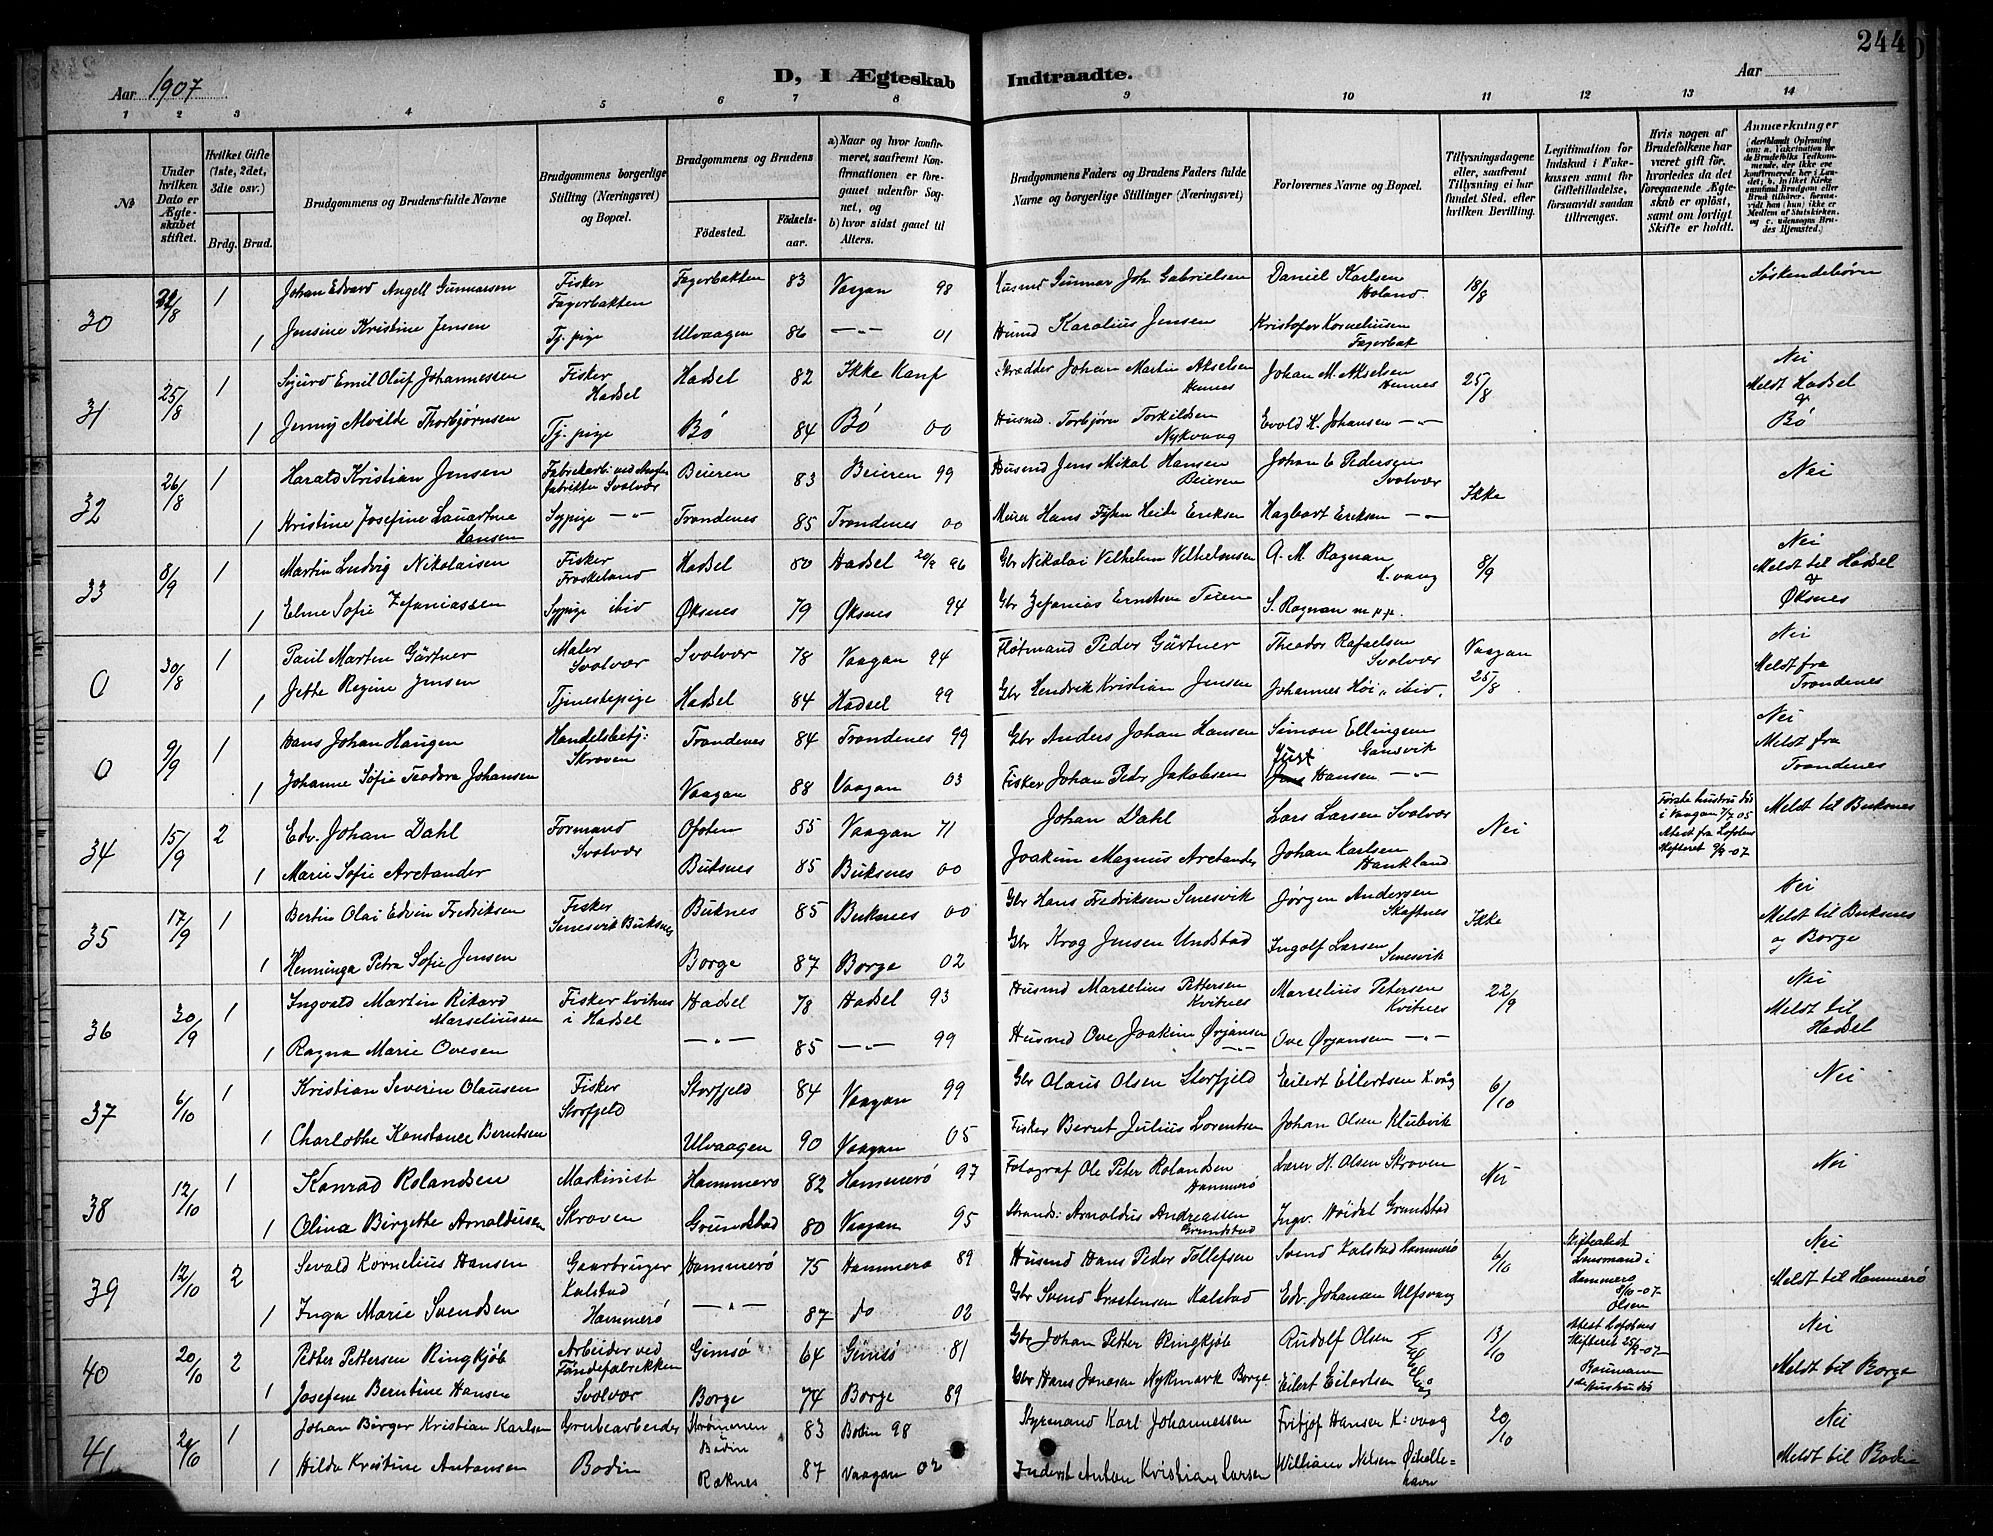 244
Aar 1907
D, I Ægteskab Indtraadte.
Aar
1 2 3 4 5 6 7 8 9 10 11 12 13 14
No
Under hvilken Dato er Ægteskabet stiftet.
Hvilket Gifte (1ste, 2det, 3die osv.)
Brdg. Brud.
Brudgommens og Brudens fulde Navne
Brudgommens borgerlige Stilling (Næringsvei) og Bopæl.
Brudgommens og Brudens
Födested. Födselsaar.
a) Naar og hvor konfirmeret, saafremt Konfirmationen er foregaaet udenfor Sognet, og
b) hvor sidst gaaet til Alters.
Brudgommens Faders og Brudens Faders fulde Navne og borgerlige Stillinger (Næringsvei)
Forlovernes Navne og Bopæl.
Tillysningsdagene eller, saafremt Tillysning ei har fundet Sted, efter hvilken Bevilling.
Legitimation for Indskud i Enkekassen samt for Giftetilladelse, forsaavidt saadan tiltrænges.
Hvis nogen af Brudefolkene har været gift för, hvorledes da det foregaaende Ægteskab er oplöst, samt om lovligt Skifte er holdt.
Anmærkninger
30 22/8 1 Johan Edvard Angell Gunnarsen Fisker Fagerbakken Fagerbakken 83 Vaagan 98 Husmd Gunnar Joh. Gabrielsen Daniel Karlsen Holand 18/8 Söskendebörn
1 Jensine Kristine Jensen Tj. pige Ulvaagen 86 —"— 01 Husmd Karolius Jensen Kristofer Korneliusen Fagerbak
31 25/8 1 Sigurd Emil Oluf Johannessen Fisker Hadsel Hadsel 82 Ikke Konf Skrædder Johan Martin Akselsen Hennes Johan M. Akselsen Hennes 25/8 Nei Meldt Hadsel & Bö
1 Jenny Alvilde Thorbjörnsen Tj. pige Bö 84 Bö 00 Husmd. Torbjörn Torkildsen Nykvaag Evold K. Johansen —"—
32 26/8 1 Harald Kristian Jensen Fabrekarb: ved Svolvær Beieren 83 Beieren 99 Husmd Jens Mikal Hansen Beieren Johan E Pedersen Svolvær Ikke Nei
1 Kristine Josefine Hansen Sypige —"— Trondenes 85 Trondenes 00 Murer Hans Heide Eriksen Hagbart Eriksen —"—
33 8/9 1 Martin Ludvig Nikolaisen Fisker Froskeland Hadsel 80 Hadsel 20/9 96 Gbr Nikolai Vilhelm Vilhelmsen A. M. Ragnan K. vaag 8/9 Nei Meldt til Hadsel & Øksnes
1 Elme Sofie Zefaniassen Sypige ibid Øksnes 79 Øksnes 94 Gbr Zefanias Erntsen Teien S. Ragnan
0 30/8 1 Paul Martin Gärtner Maler Svolvær Svolvær 78 Vaagan 94 Fløtmand Peder Gärtner Theodor Rafaelsen Svolvær Vaagan 25/8 Nei Meldt fra Trondenes
1 Jette Regine Jensen Tjenestepige Hadsel 84 Hadsel 99 Gbr Hendrik Kristian Jensen Johannes Höi ibid.
0 9/9 1 Hans Johan Haugen Handelsbetj: Skroven Trondenes 84 Trondenes 99 Gbr Anders Johan Hansen Simon Ellingsen Gansvik Nei Meldt fra Trondenes
1 Johanne Sofie Teodora Johansen Vaagan 88 Vaagan 03 Fisker Johan Peder Jakobsen Just Hansen —"—
34 15/9 2 Edv. Johan Dahl Formand Svolvær Ofoten 55 Vaagan 71 Johan Dahl Lars Larsen Svolvær Nei Første hustru död i Vaagan 7/7 05 Attest fra Lofotens skifteret 9/9-07 Meldt til Buksnes
1 Marie Sofie Arctander Buksnes 85 Buksnes 00 Joakim Magnus Arctander Johan Karlsen Haukland
35 17/9 1 Bertin Olai Edvin Fredriksen Fisker Senesvik Buksnes Buknes 85 Buknes 00 Gbr Hans Fredriksen Senesvik Jörgen Andersen Skaftnes Ikke Nei Meldt til Buksnes og Borge
1 Henninga Petra Sofie Jensen Borge 87 Borge 02 Gbr Krog Jensen Undstad Ingolf Larsen Senesvik
36 30/9 1 Ingvald Martin Rikard Marseliussen Fisker Kvitnes i Hadsel Hadsel 78 Hadsel 93 Husmd Marselius Pettersen Kvitnes Marselius Petersen Kvitnes 22/9 Nei Meldt til Hadsel
1 Ragna Marie Ovesen —"— 85 —"— 99 Husmd Ove Joakim Ørjansen —"— Ove Ørjansen —"—
37 6/10 1 Kristian Severin Olausen Fisker Storfjeld Storfjeld 84 Vaagan 99 Gbr Olaus Olsen Storfjeld Eilert Eilertsen K.våg 6/10 Nei
1 Charlotte Konstance Berntsen Ulvaagen 90 Vaagan 05 Fisker Bernt Julius Lorentsen Johan Olsen Klubvik
38 12/10 1 Konrad Rolandsen Maskinist Skroven Hammerö 82 Hammerö 97 Fotograf Ole Peter Rolandsen Hammerö Lærer H. Olsen Skroven Nei Nei
1 Olina Birgethe Arnoldusen Grundstad 80 Vaagan 95 Strands: Arnoldus Andreassen Grundstad Ingv. Höidal Grundstad
39 12/10 2 Sevald Kornelius Hansen Gaarbruger Kalstad Hammerö Hammerö 75 Hammerö 89 Husmd Hans Peder Tollefsen Svend Kalstad Hammerö 6/10 Skifteattest Lensmand i Hammerö 8/10-07 Olsen Nei Meldt til Hammerö
1 Inga Marie Svendsen —"— 87 do 02 Gbr Svend Krostensen Kalstad Edv. Johansen Ulfsvaag
40 20/10 2 Petter Pettersen Ringkjöb Arbeider ved Töndefabrikken Svolvær Gimsö 64 Gimsö 81 Gbr Johan Petter Ringkjöb Rudolf Olsen 13/10 Attest Lofotens Skifteret 25/9-07 Nei Meldt til Borge
1 Josefine Berntine Hansen Borge 74 Borge 89 Gbr Hans Jonasen Nykmark Borge Eilert Eilertsen
41 20/10 1 Johan Birger Kristian Karlsen Grubearbeider Bodin Strömmen Bodin 83 Bodin 98 Styrmand Karl Johannessen Fritjof Hansen K:vaag 20/10 Nei Meldt til Bodin
1 Hilda Kristine Antonsen Raknes 87 Vaagan 02 Inderst Anton Kristian Larsen William Nelsen Øihellehavn